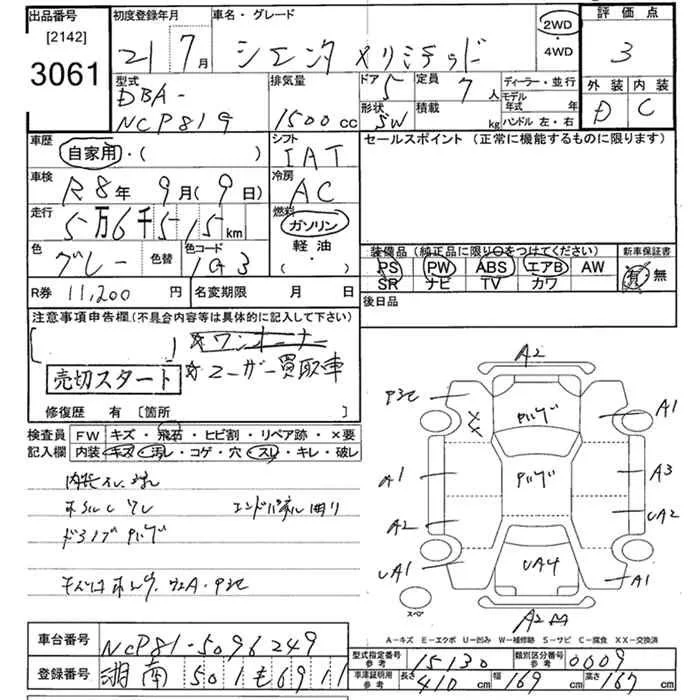 出品番号
[2142]
3061
初度登録年月
21 7月
車名・グレード
シエンタ メリミテッド
2WD
・4WD
評価点
3
外装 内装
D C
型式
DBA-
NCP81G
排気量
1500cc
ドア 5
定員 7人
形状 SW
積載 kg
ディーラー・並行
モデル年式 年
ハンドル 左・右
車歴
自家用・( )
シフト
IAT
車検
R8年 9月(9日)
冷房
AC
走行
5万6千515km
燃料
ガソリン
軽油
( ・ )
色
グレー
色替
色コード
1G3
R券 11,200円
名変期限 月 日
セールスポイント (正常に機能するものに限ります)
装備品 (純正品に限り○をつけてください)
PS PW ABS エアB AW
SR ナビ TV カワ
新車保証書
有 無
後日品
注意事項申告欄(不具合内容等は具体的に記入して下さい)
☆ワンオーナー
売切スタート
☆ユーザー買取車
修復歴 有 [箇所 ]
検査員 FW キズ・飛石・ヒビ割・リペア跡・×要
記入欄 内装 キズ・汚レ・コゲ・穴・スレ・キレ・破レ
エンドパネル曲り
A2
A1
A1
A3
A2
UA2
UA1
UA4
A1
A2
スペア
A-キズ E-エクボ U-凹み W-補修跡 S-サビ C-腐食 XX-交換済
車台番号 NCP81-5096249
登録番号 湘南 501 も 6911
型式指定番号
参考
15130
類別区分番号
参考
0609
車庫証明用
参考
長さ 410cm 幅 169cm 高さ 167cm